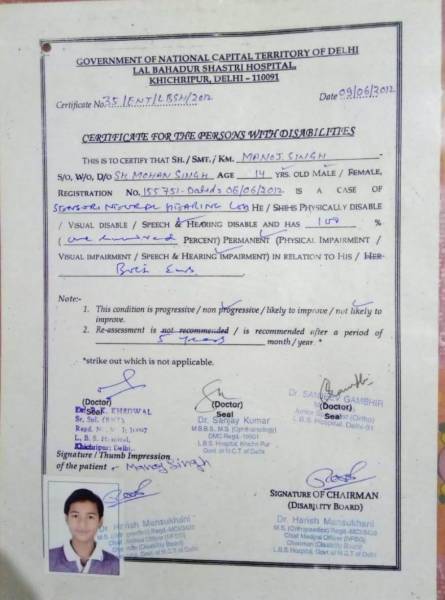 GOVERNMENT OF NATIONAL CAPITAL TERRITORY OF DELHI
LAL BAHADUR SHASTRI HOSPITAL,
KHICHRIPUR, DELHI – 110091
Certificate No. 35/ENT/LBSH/2012 Date 09/06/2012
CERTIFICATE FOR THE PERSONS WITH DISABILITIES
THIS IS TO CERTIFY THAT SH. / SMT. / KM. MANOJ SINGH
S/O, W/O, D/O SH. MOHAN SINGH AGE 14 YRS. OLD MALE / FEMALE,
REGISTRATION NO. 155751 - Dated: 06/06/2012 IS A CASE OF
HEARING HE / SHE IS PHYSICALLY DISABLE
/ VISUAL DISABLE / SPEECH & HEARING DISABLE AND HAS 100 %
( One hundred PERCENT) PERMANENT (PHYSICAL IMPAIRMENT /
VISUAL IMPAIRMENT / SPEECH & HEARING IMPAIRMENT) IN RELATION TO HIS / HER
Both Ears
Note:-
1. This condition is progressive / non progressive / likely to improve / not likely to
improve.
2. Re-assessment is not recommended / is recommended after a period of
5 years month / year. *
*strike out which is not applicable.
(Doctor)
Seal
Sr. Spl. (ENT)
L. B. S. Hospital,
Khichripur, Delhi.
(Doctor)
Seal
Dr. Sanjay Kumar
M.B.B.S., M.S. (Ophthalmology)
L.B.S. Hospital Khichri Pur
Govt. of N.C.T. of Delhi
Dr. SANDEEV GAMBHIR
(Doctor)
Seal
L.B.S. Hospital, Delhi-91
Signature / Thumb Impression
of the patient - Manoj Singh
SIGNATURE OF CHAIRMAN
(DISABILITY BOARD)
Dr. Harish Mansukhani
Dr. Harish Mansukhani
Chief Medical Officer (NFSG)
Chairman (Disability Board)
L.B.S. Hospital, Govt. of N.C.T of Delhi